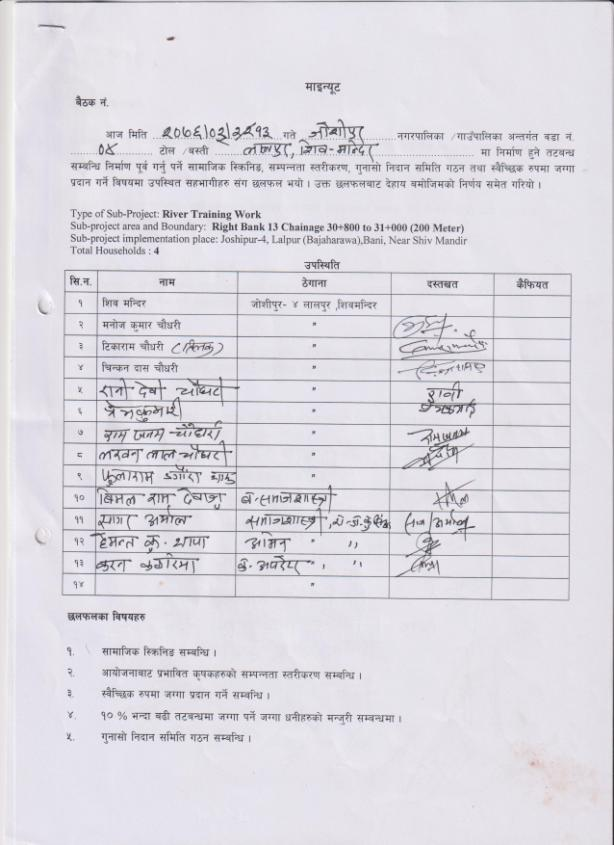 माइन्यूट
बैठक नं.
आज मिति २०७६।०३। गते जोशीपुर नगरपालिका /गाउँपालिका अन्तर्गत वडा नं.
०४ टोल /वस्ती लालपुर, शिव-मन्दिर मा निर्माण हुने तटबन्ध
सम्बन्धि निर्माण पूर्व गर्नु पर्ने सामाजिक स्क्रिनिङ, सम्पन्नता स्तरीकरण, गुनासो निदान समिति गठन तथा स्वैच्छिक रुपमा जग्गा
प्रदान गर्ने विषयमा उपस्थित सहभागीहरु संग छलफल भयो । उक्त छलफलबाट देहाय बमोजिमको निर्णय समेत गरियो ।
Type of Sub-Project: River Training Work
Sub-project area and Boundary: Right Bank 13 Chainage 30+800 to 31+000 (200 Meter)
Sub-project implementation place: Joshipur-4, Lalpur (Bajaharawa),Bani, Near Shiv Mandir
Total Households : 4
उपस्थिति
सि.न. नाम ठेगाना दस्तखत कैफियत
१ शिव मन्दिर जोशीपुर- ४ लालपुर ,शिवमन्दिर
२ मनोज कुमार चौधरी "
३ टिकाराम चौधरी "
४ चिन्कन दास चौधरी "
५ रानी देवी चौधरी " रानी
६ प्रेमकुमारी "
७ राम जनम चौधरी "
८ लखन लाल चौधरी "
९ फुलाराम "
१० बिमल राम
११ सागर अर्याल समाजशास्त्री
१२ हेमन्त कु. थापा अमिन " "
१३ करन " "
१४ "
छलफलका विषयहरु
१. सामाजिक स्क्रिनिङ सम्बन्धि ।
२. आयोजनाबाट प्रभावित कृषकहरुको सम्पन्नता स्तरीकरण सम्बन्धि ।
३. स्वैच्छिक रुपमा जग्गा प्रदान गर्ने सम्बन्धि ।
४. १० % भन्दा बढी तटबन्धमा जग्गा पर्ने जग्गा धनीहरुको मन्जुरी सम्बन्धमा ।
५. गुनासो निदान समिति गठन सम्बन्धि ।